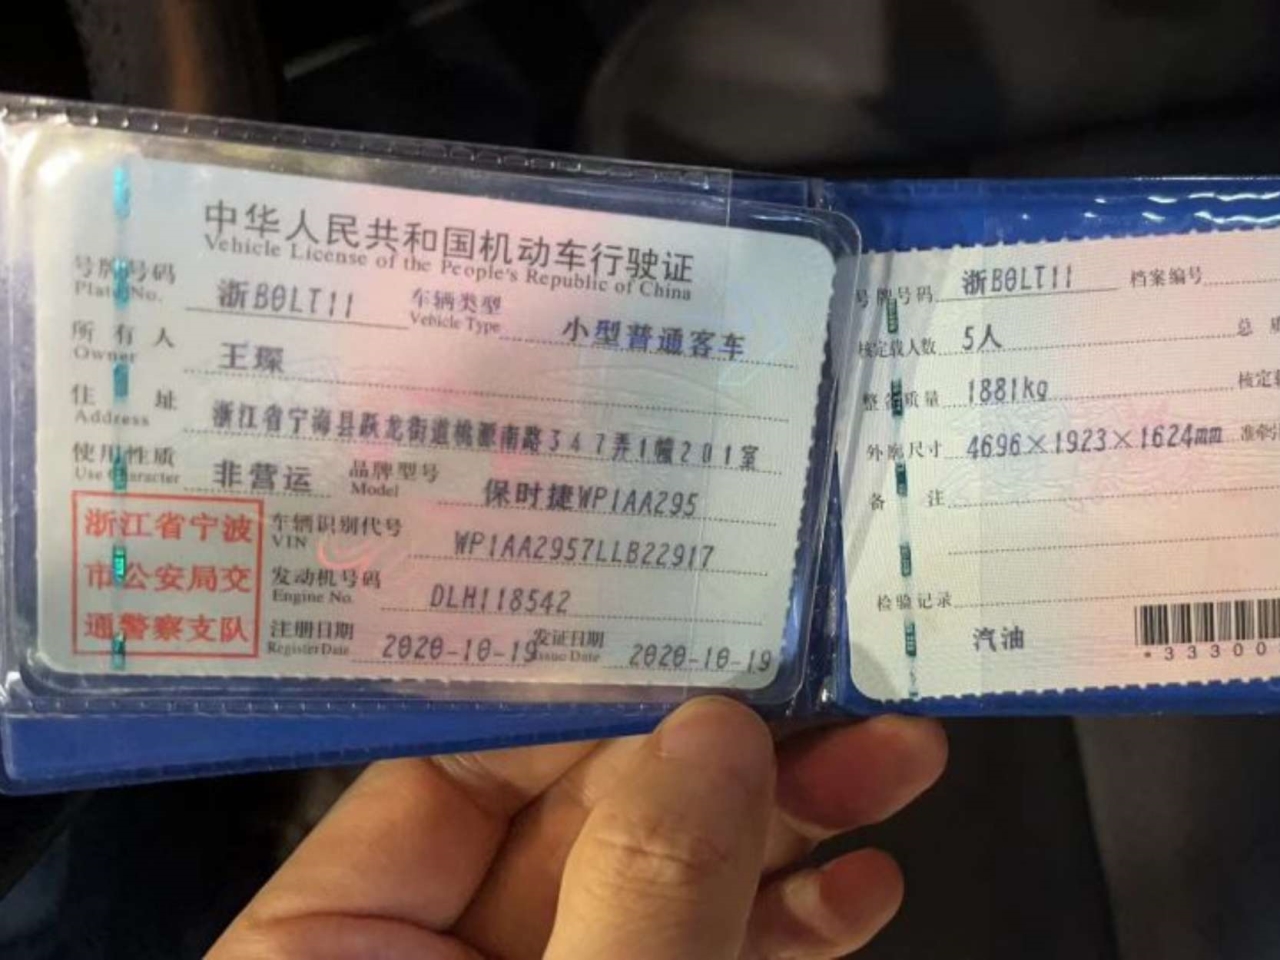 中华人民共和国机动车行驶证
Vehicle License of the People's Republic of China
号牌号码 浙B0LT11 车辆类型 小型普通客车
Plate No. Vehicle Type
所有人 王琛
Owner
住址 浙江省宁海县跃龙街道桃源南路347弄1幢201室
Address
使用性质 非营运 品牌型号 保时捷WP1AA295
Use Character Model
浙江省宁波
市公安局交
通警察支队
车辆识别代号 WP1AA2957LLB22917
VIN
发动机号码 DLH118542
Engine No.
注册日期 2020-10-19 发证日期 2020-10-19
Register Date Issue Date
号牌号码 浙B0LT11 档案编号
核定载人数 5人 总
整备质量 1881kg 核定
外廓尺寸 4696×1923×1624mm 准牵
备注
检验记录
汽油
*33300